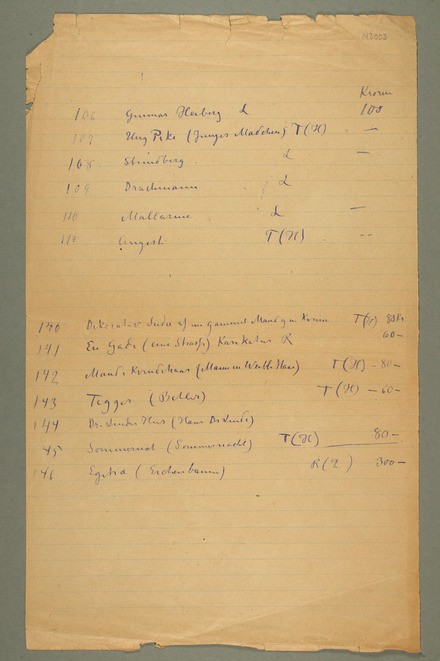 Kronen
106 Gunnar Heiberg L 100
107 Ung Pike (Junges Madchen) T(H) —
108 Strindberg L —
109 Drachmann L
110 Mallarme L —
111 Angest T(H) --
140 af en gammel Mand T(H) 80Kr
141 En Gade (eine Strasse) Karikatur R 60—
142 Mands (Mann und Weib) T(H) - 80—
143 Tigger (Bettler) T(H) — 60—
144 Dr. Lindes Hus (Haus Dr Linde)
145 Sommernat (Sommernacht) T(H) 80—
146 Egetræ (Eichenbaum) R( ) 300—